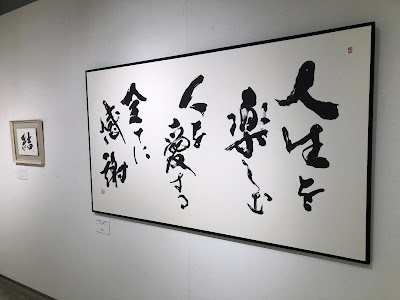 人生を
楽しむ
人を
愛する
全てに
感謝
結